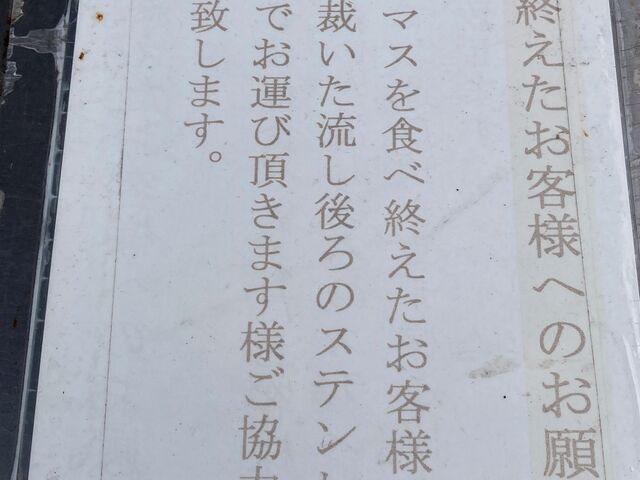 終えたお客様へのお願
マスを食べ終えたお客様
裁いた流し後ろのステンレ
でお運び頂きます様ご協力
致します。